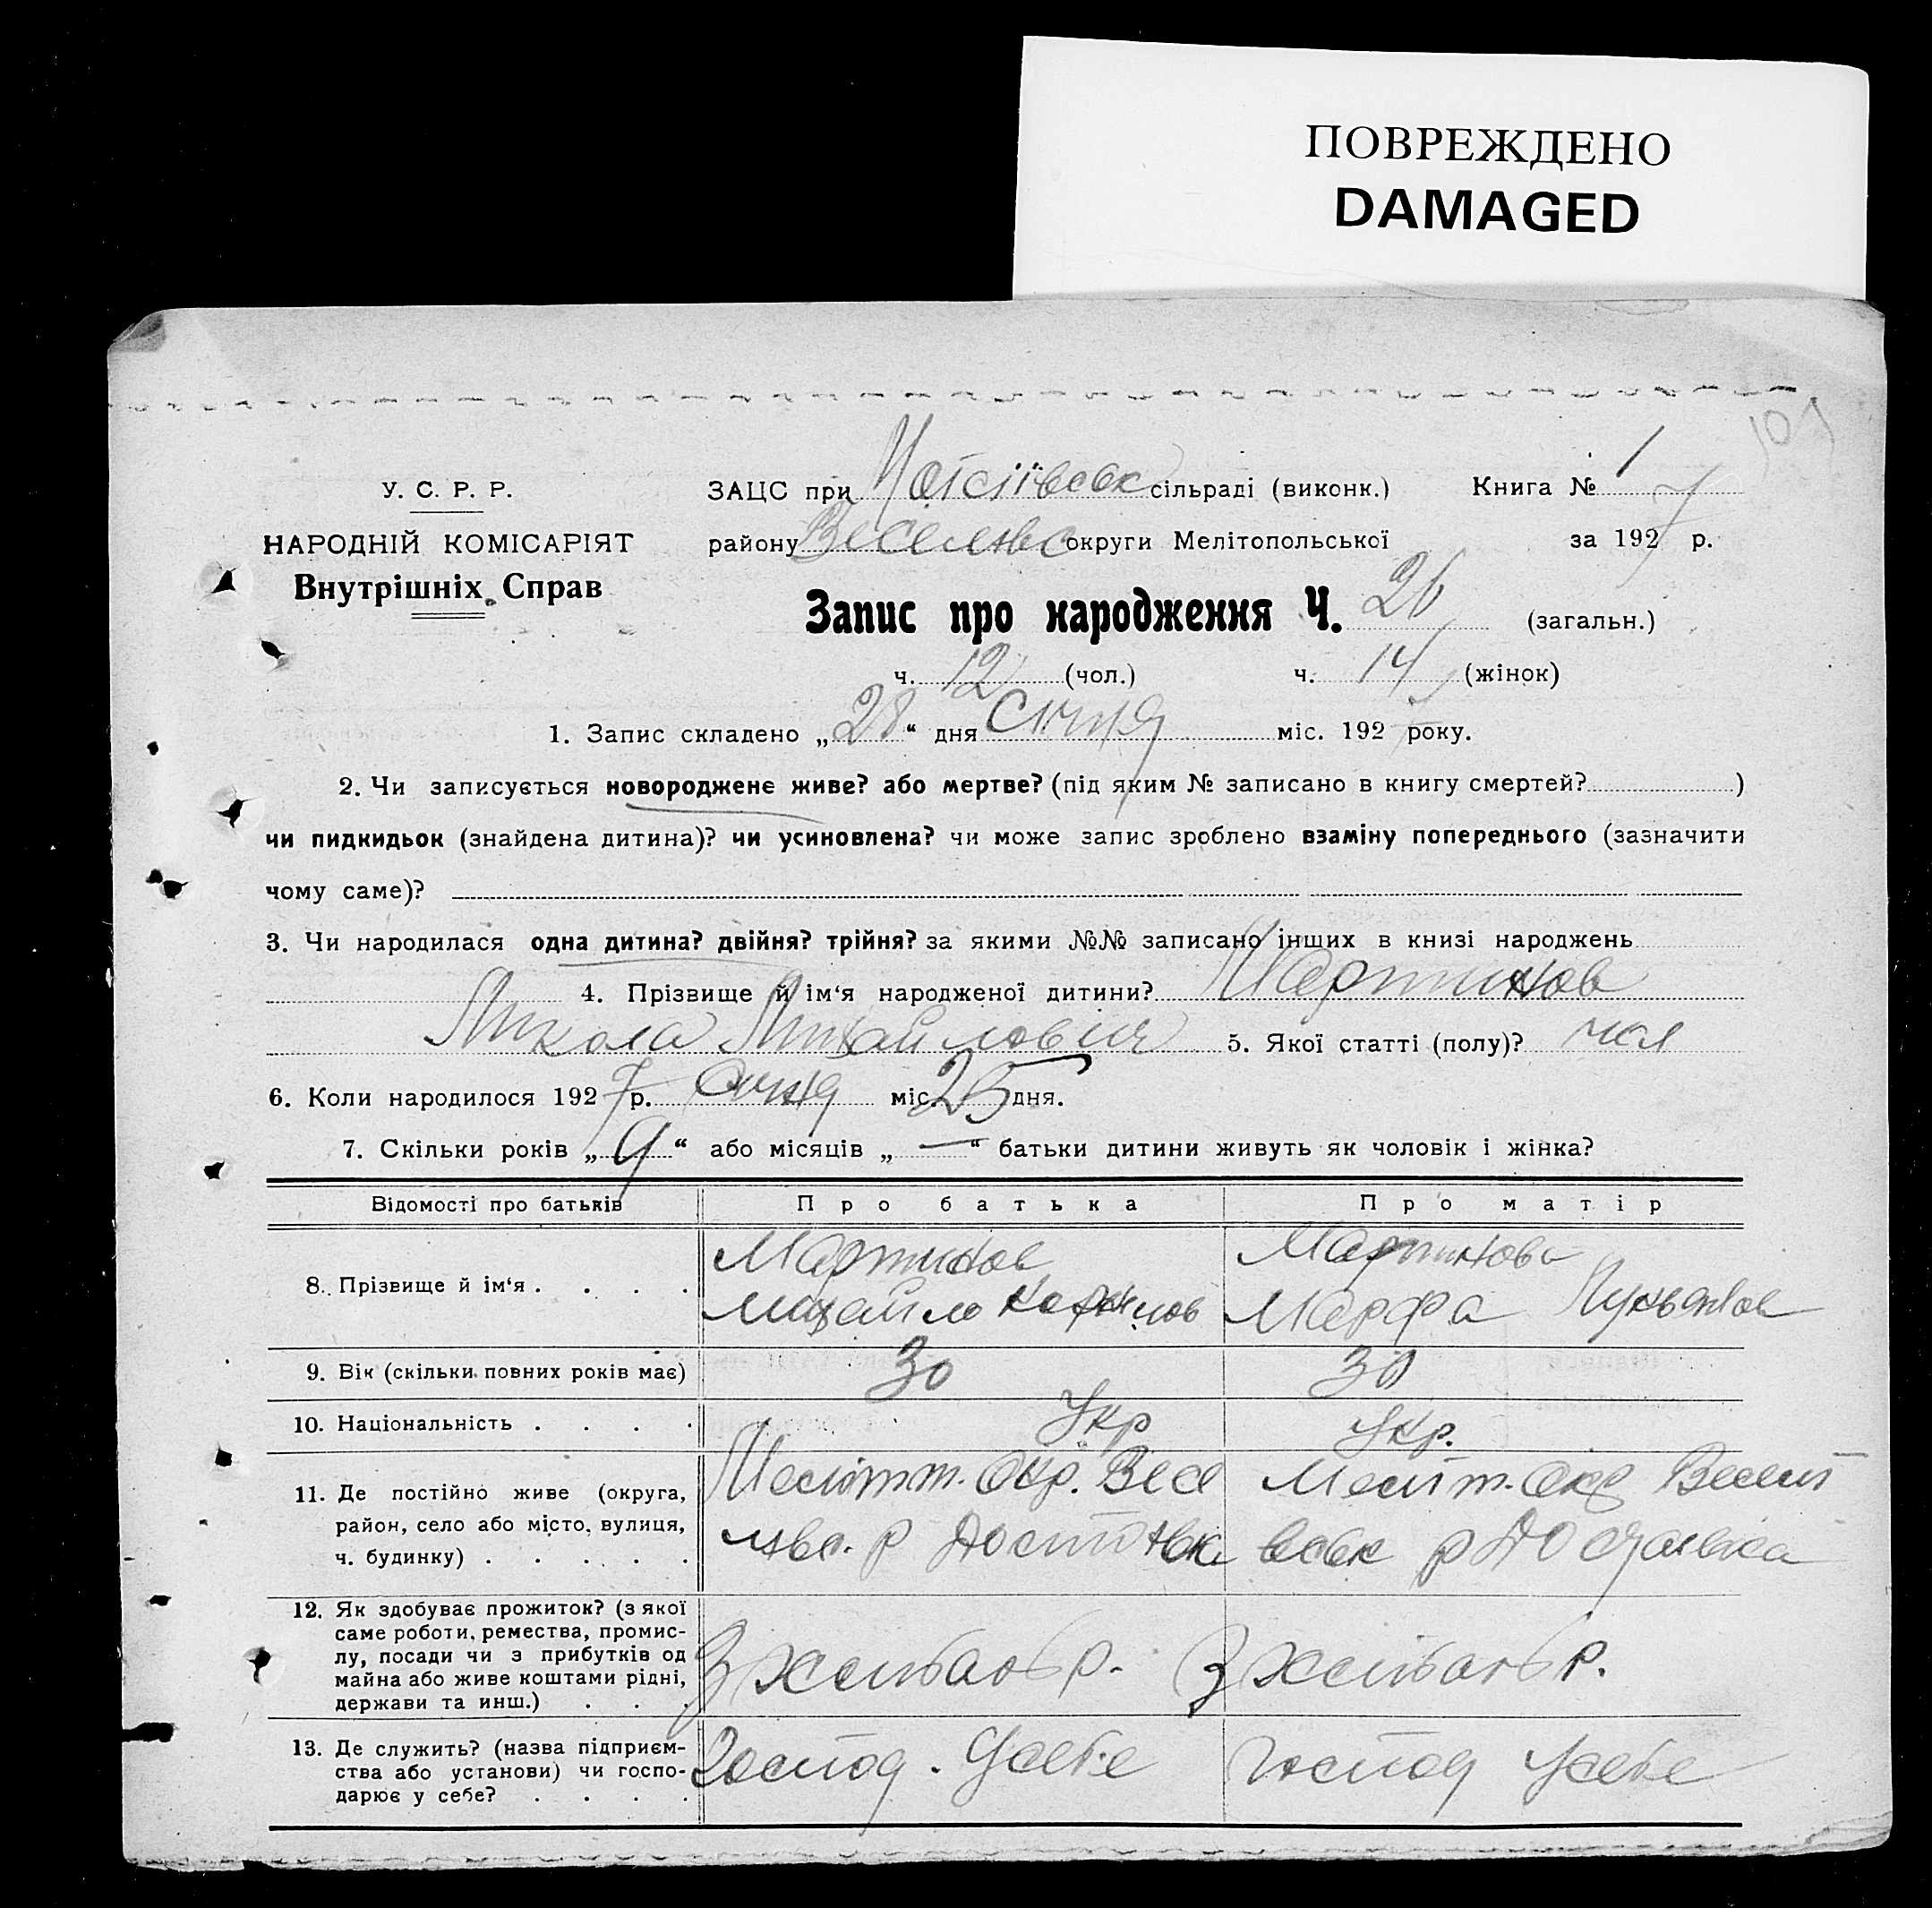 ПОВРЕЖДЕНО
DAMAGED
107
У. С. Р. Р.
НАРОДНІЙ КОМІСАРІЯТ
Внутрішніх Справ
ЗАЦС при сільраді (виконк.) Книга № 1
району Веселівс округи Мелітопольської за 1927 р.
Запис про народження Ч. 26 (загальн.)
ч. 12 (чол.) ч. 14 (жінок)
1. Запис складено „28“ дня Січня міс. 1927 року.
2. Чи записується новороджене живе? або мертве? (під яким № записано в книгу смертей? )
чи пидкидьок (знайдена дитина)? чи усиновлена? чи може запис зроблено взаміну попереднього (зазначити
чому саме)?
3. Чи народилася одна дитина? двійня? трійня? за якими №№ записано інших в книзі народжень
4. Прізвище й ім‘я народженої дитини? Мартинов
Микола Михайлович 5. Якої статті (полу)? чол
6. Коли народилося 1927 р. Січня міс. 25 дня.
7. Скільки років „9“ або місяців „—“ батьки дитини живуть як чоловік і жінка?
Відомості про батьків Про батька Про матір
8. Прізвище й ім‘я . . . . Мартинов Михайло Мартинова Марфа
9. Вік (скільки повних років має) 30 30
10. Національність . . . . Укр Укр.
11. Де постійно живе (округа,
район, село або місто, вулиця,
ч. будинку) . . . . .
Меліт. Окр. Весе
лівс. р
Меліт. Окр Веселі
вськ р
12. Як здобуває прожиток? (з якої
саме роботи, ремества, промис-
лу, посади чи з прибутків од
майна або живе коштами рідні,
держави та инш.) . . .
З хліборобр. З хліборобр.
13. Де служить? (назва підприєм-
ства або установи) чи госпо-
дарює у себе? . . . .
Господ. Усебе Господ Усебе